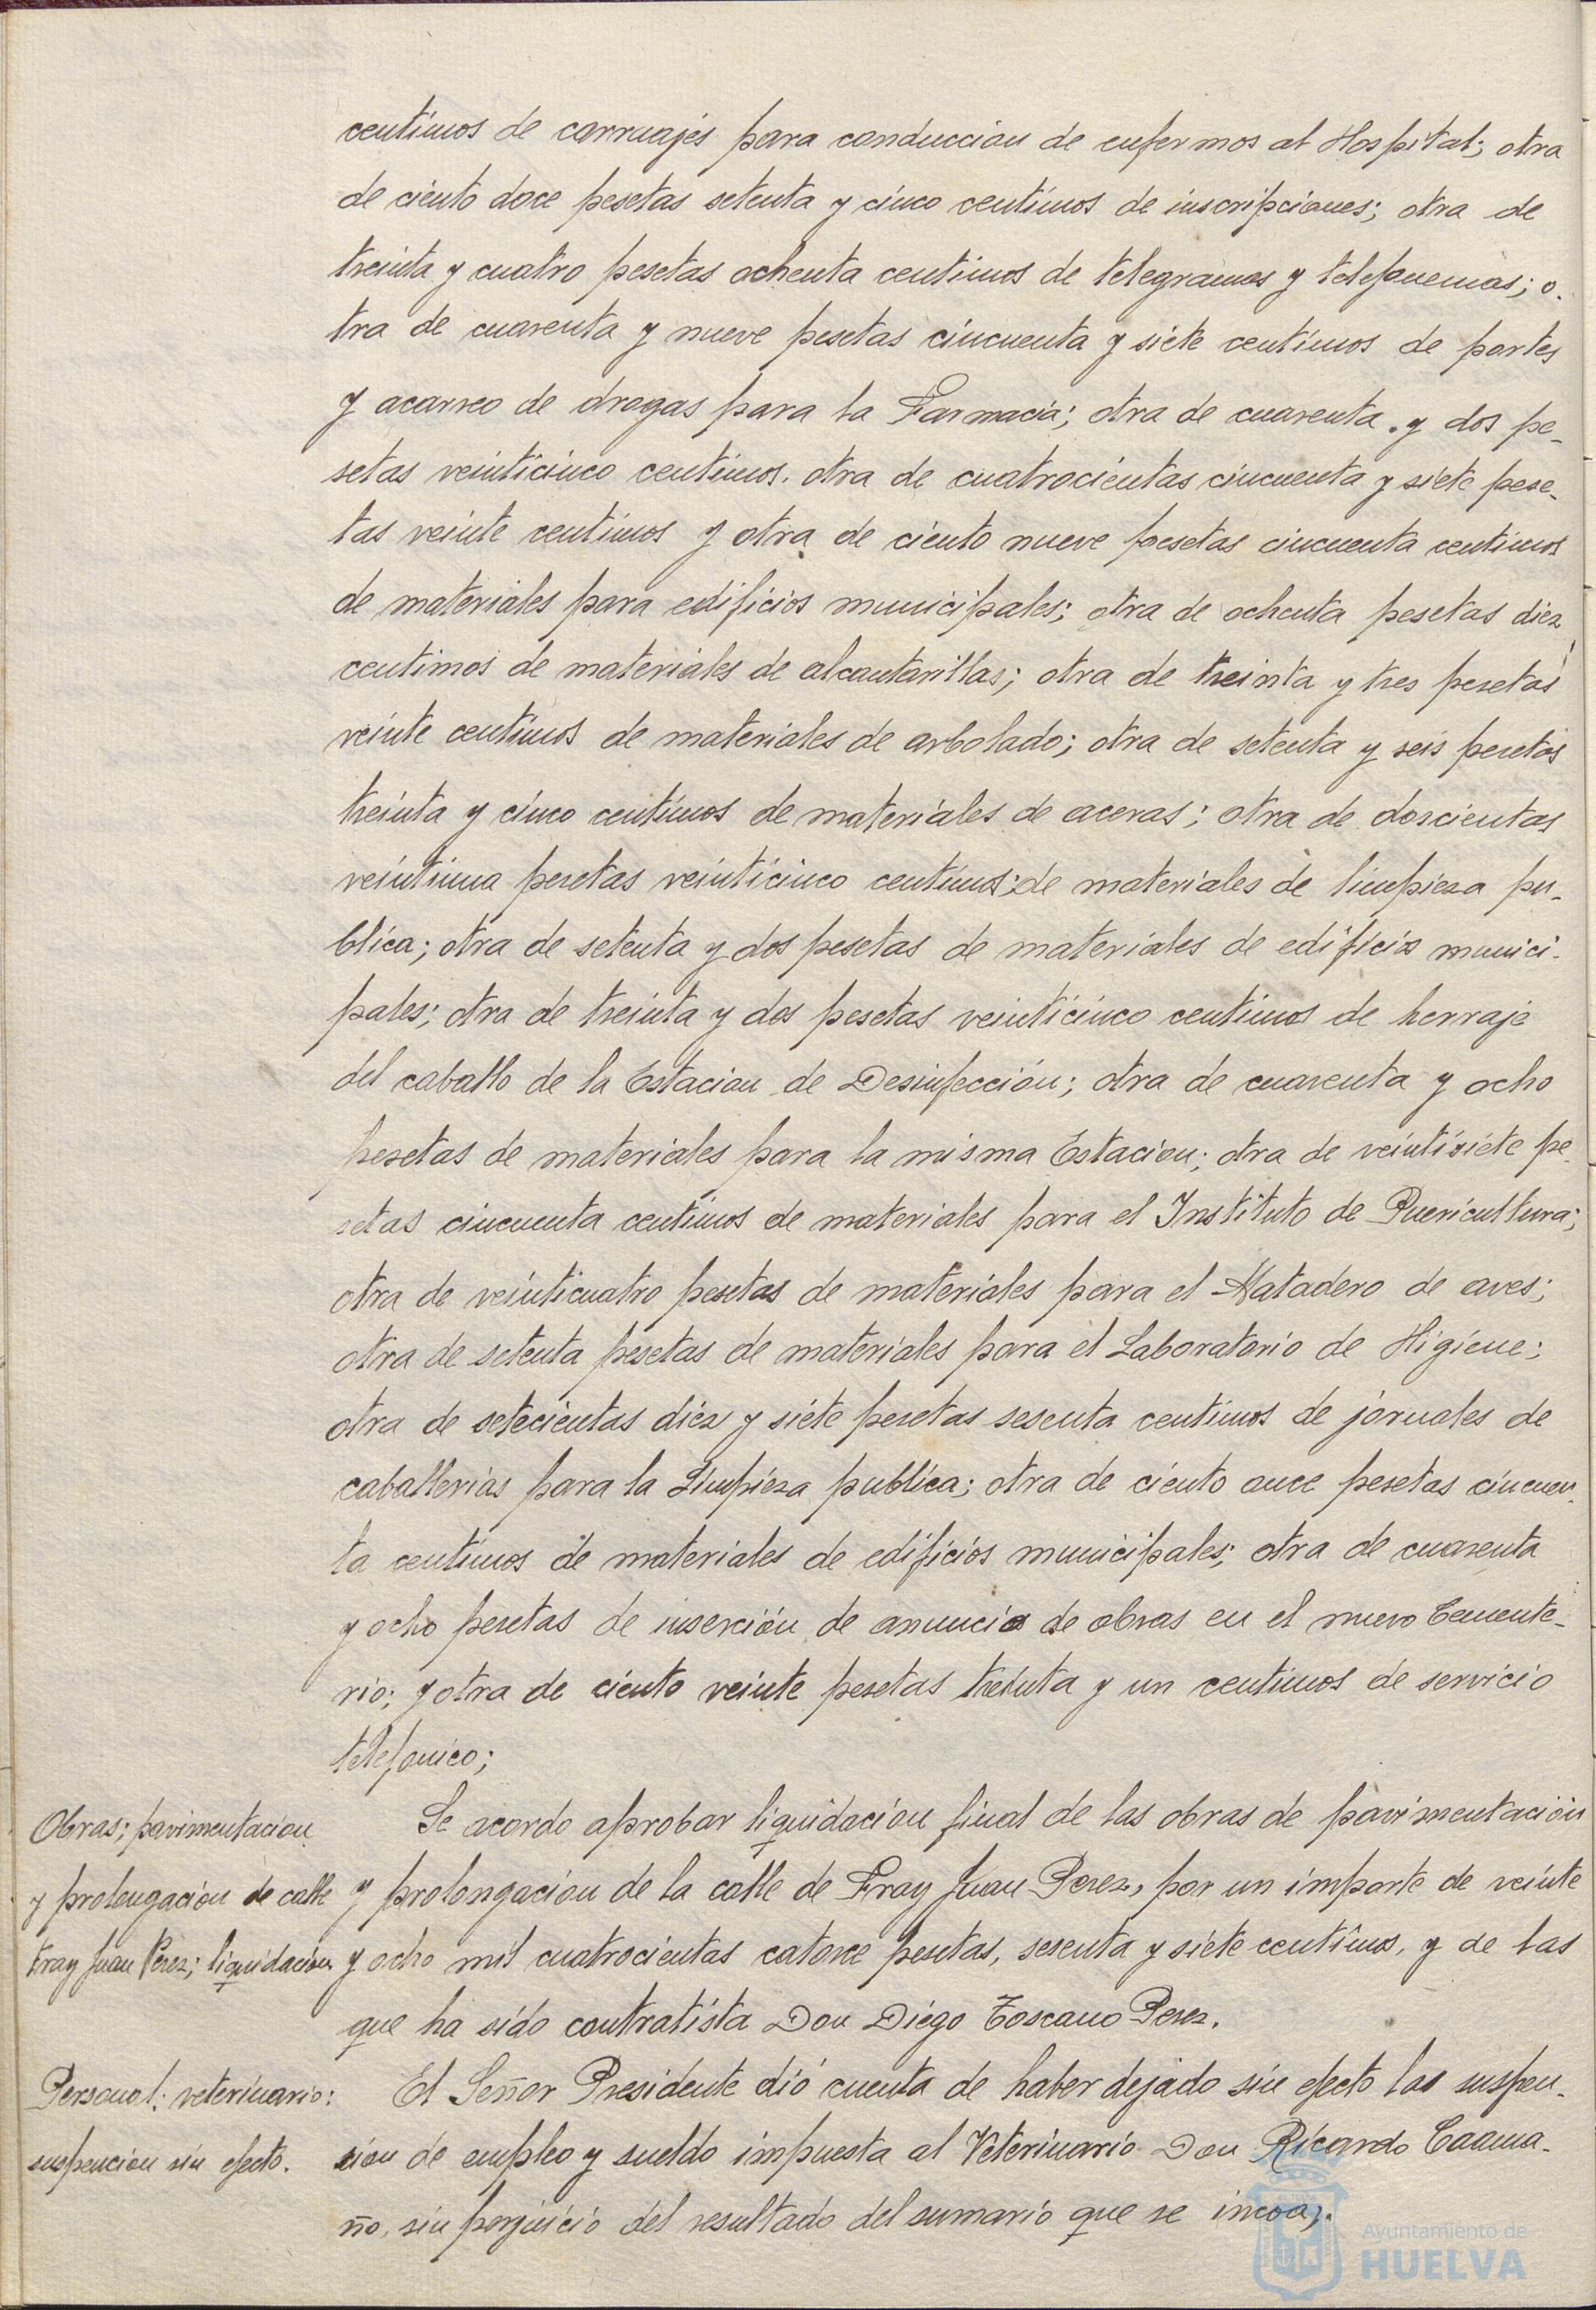 centimos de carruajes para conduccion de enfermos al Hospital; otra
de ciento doce pesetas setenta y cinco centimos de inscripciones; otra de
treinta y cuatro pesetas ochenta centimos de telegramas y telefonemas; o-
tra de cuarenta y nueve pesetas cincuenta y siete centimos de portes
y acarreo de drogas para la Farmacia; otra de cuarenta y dos pe-
setas veinticinco centimos. otra de cuatrocientas cincuenta y siete pese-
tas veinte centimos y otra de ciento nueve pesetas cincuenta centimos
de materiales para edificios municipales; otra de ochenta pesetas diez
centimos de materiales de alcantarillas; otra de treinta y tres pesetas
veinte centimos de materiales de arbolado; otra de setenta y seis pesetas
treinta y cinco centimos de materiales de aceras; otra de doscientas
veintiuna pesetas veinticinco centimos; de materiales de limpieza pu-
blica; otra de setenta y dos pesetas de materiales de edificios munici-
pales; otra de treinta y dos pesetas veinticinco centimos de herraje
del caballo de la Estacion de Desinfección; otra de cuarenta y ocho
pesetas de materiales para la misma Estacion; otra de veintisiete pe-
setas cincuenta centimos de materiales para el Instituto de Puericultura;
otra de veinticuatro pesetas de materiales para el Matadero de aves;
otra de setenta pesetas de materiales para el Laboratorio de Higiene;
otra de setecientas diez y siete pesetas sesenta centimos de jornales de
caballerias para la Limpieza publica; otra de ciento once pesetas cincuen-
ta centimos de materiales de edificios municipales; otra de cuarenta
y ocho pesetas de inserción de anuncio de obras en el nuevo Cemente-
rio; y otra de ciento veinte pesetas treinta y un centimos de servicio
telefonico;
Obras; pavimentacion
y prolongacion de calle
Fray Juan Perez; liquidación
Se acordo aprobar liquidacion final de las obras de pavimentación
y prolongacion de la calle de Fray Juan Perez, por un importe de veinte
y ocho mil cuatrocientas catorce pesetas, sesenta y siete centimos, y de las
que ha sido contratista Don Diego Toscano Perez.
Personal; veterinario:
suspencion sin efecto.
El Señor Presidente dió cuenta de haber dejado sin efecto las suspen-
sion de empleo y sueldo impuesta al Veterinario Don Ricardo Caama-
ño, sin perjuicio del resultado del sumario que se incoa;.
Ayuntamiento de
HUELVA